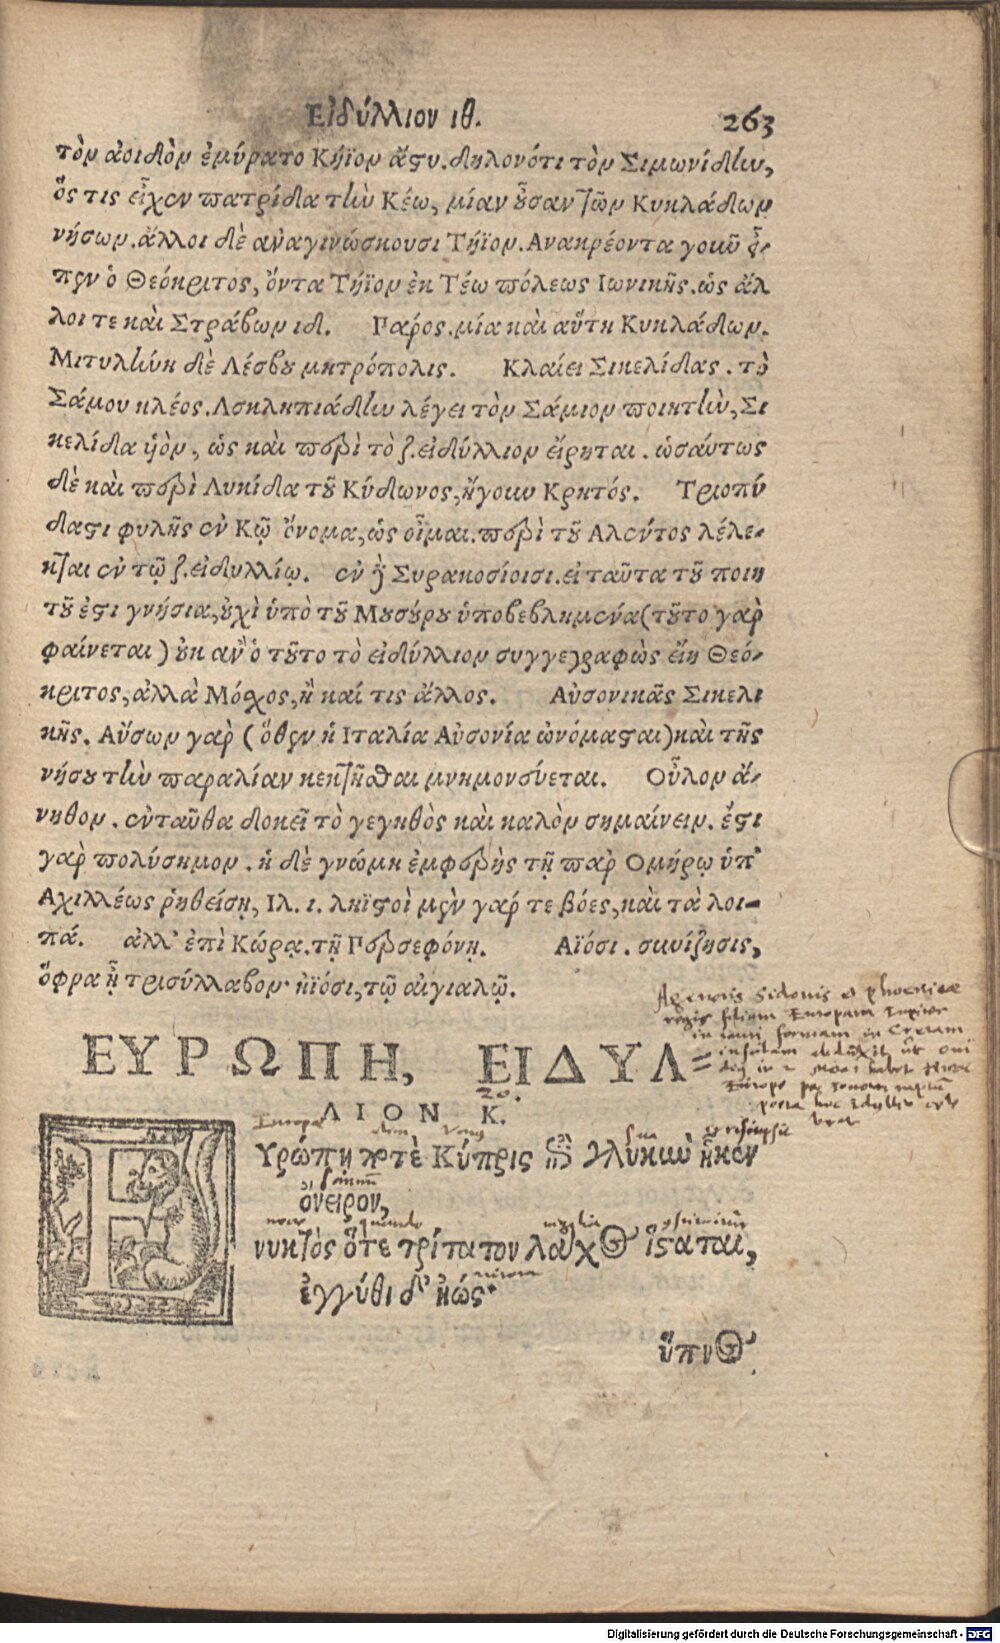 Εἰδύλλιον ιθ. 263
τὸν ἀοιδὸν ἐμύρατο Κήϊον ἄςυ. δηλονότι τὸν Σιμωνίδην,
ὅς τις εἶχεν πατρίδα τὴν Κέω, μίαν οὖσαν τῶν Κυκλάδων
νήσων. ἄλλοι δὲ αναγινώσκουσι Τήϊον. Ανακρέοντα γοιῶ ἔ-
πεν ὁ Θεόκριτος, ὄντα Τήϊον ἐκ Τέω πόλεως Ιωνικῆς. ὡς ἄλ
λοι τε καὶ Στράβων ιδ. Πάρος. μία καὶ αὕτη Κυκλάδων.
Μιτυλήνη δὲ Λέσβου μητρόπολις. Κλαίει Σικελίδας. τὸ
Σάμου κλέος. Ασκληπιάδην λέγει τὸν Σάμιον ποιητὴν, Σι
κελίδα ὑὸν, ὡς καὶ περὶ τὸ ζ. εἰδύλλιον εἴρηται. ὡσαύτως
δὲ καὶ περὶ Λυκίδα τοῦ Κύδωνος, ἤγουν Κρητός. Τριοπί
δαςι φυλῆς ἐν Κῷ ὄνομα, ὡς οἶμαι. περὶ τοῦ Αλεντος λέλε-
κται ἐν τῷ ζ. εἰδυλλίῳ. ἐν δὲ Συρακοσίοισι. εἰ ταῦτα τοῦ ποιη
τοῦ ἐςι γνήσια, οὐχὶ ὑπὸ τοῦ Μουσούρου ὑποβεβλημένα (τοῦτο γὰρ
φαίνεται) οὐκ ἂν ὁ τοῦτο τὸ εἰδύλλιον συγγεγραφὼς εἴη Θεό-
κριτος, ἀλλὰ Μόχος, ἢ καί τις ἄλλος. Αὐσονικᾶς Σικελι
κῆς. Αὔσων γὰρ (ὅθεν ἡ Ιταλία Αὐσονία ὠνόμαςαι) καὶ τῆς
νήσου τὴν παραλίαν κεκτῆσθαι μνημονεύεται. Οὖλον ἄ-
νηθον. ἐνταῦθα δοκεῖ τὸ γεγηθὸς καὶ καλὸν σημαίνειν. ἔςι
γὰρ πολύσημον. ἡ δὲ γνώμη ἐμφερὴς τῇ παρ Ομήρῳ ὑπ'
Αχιλλέως ῥηθείσῃ, Ιλ. ι. ληϊςοὶ μὲν γάρ τε βόες, καὶ τὰ λοι-
πά. ἀλλ' ἐπὶ Κώρᾳ. τῇ Περσεφόνῃ. Αϊόσι. συνίζησις,
ὄφρα ᾖ τρισύλλαβον· ἠϊόσι, τῷ αἰγιαλῷ.
Agenoris Sidonis et phoenicae
regis filiam Europam Iupiter
in tauri formam in Cretam
insulam
ΕΥΡΩΠΗ, ΕΙΔΥΛ=
20.
ΛΙΟΝ Κ.
Europa
Εὐρώπη ποτὲ Κύπρις ἐπὶ γλυκὺν ἧκεν
ὄνειρον,
νυκτὸς ὅτε τρίτατον λάχος ἵςαται,
ἐγγύθι δ' ἠώς·
ὕπνος
Digitalisierung gefördert durch die Deutsche Forschungsgemeinschaft - DFG